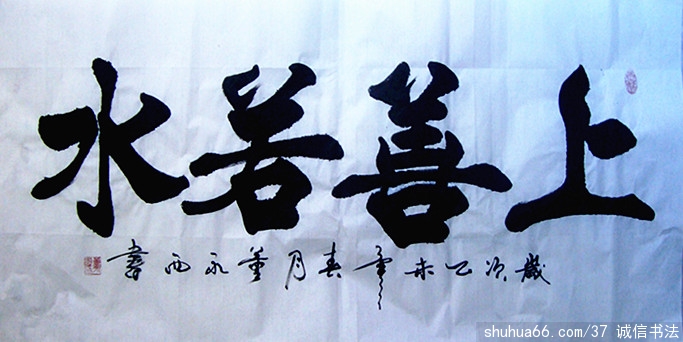 上善若水
歲次乙未年春月董永西書
shuhua66.com/37 诚信书法